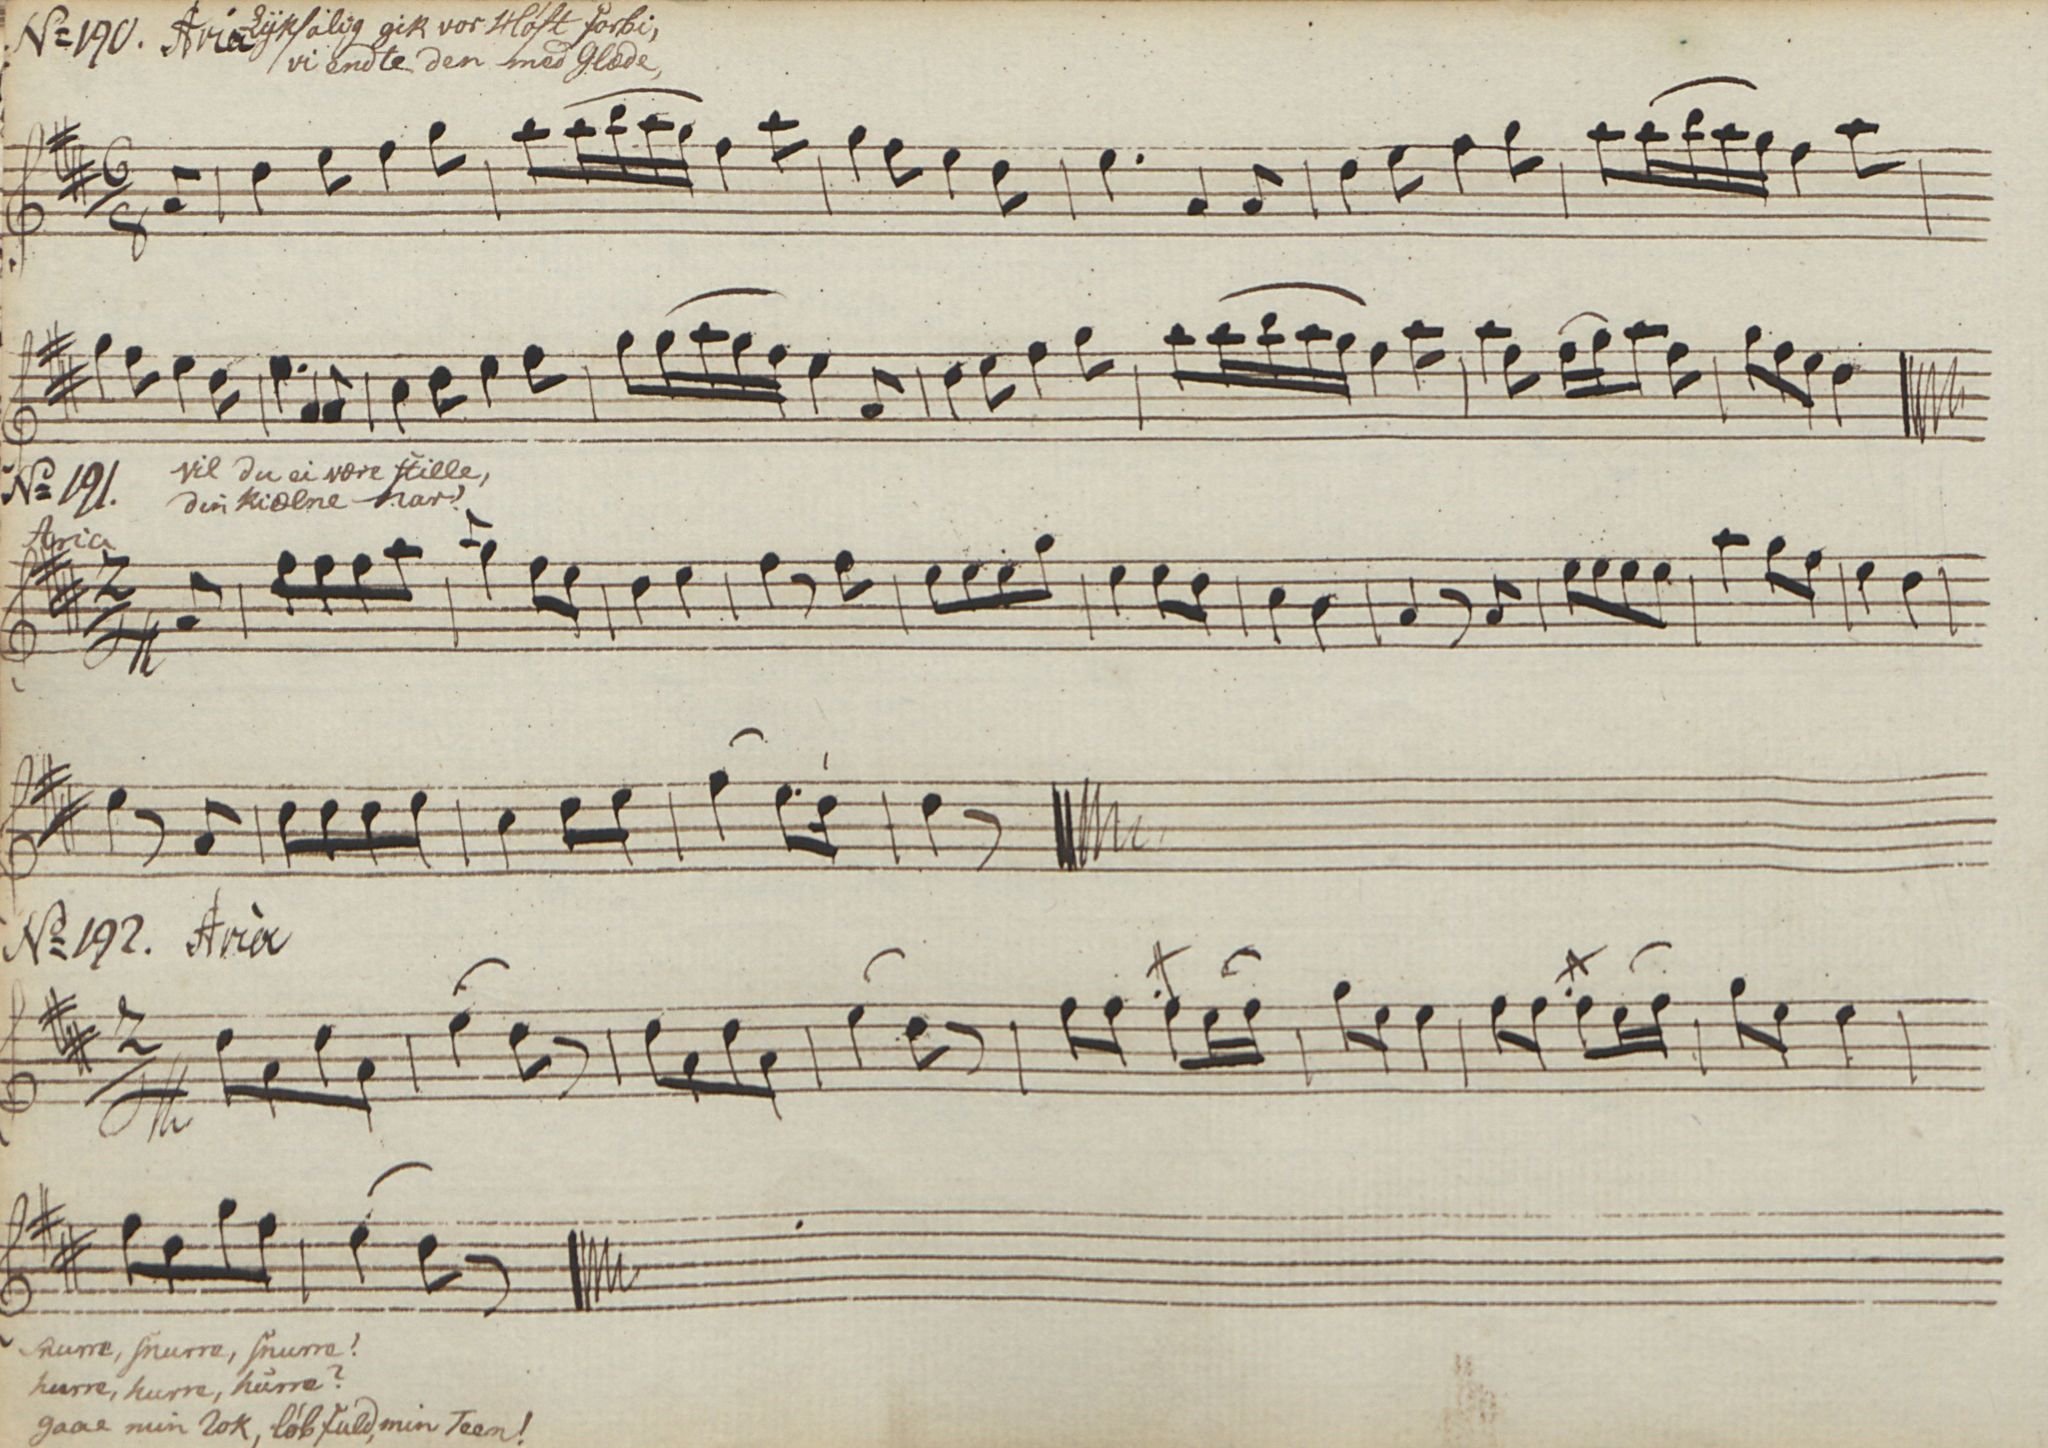 No 190. Aria Lÿksålig gik vor Høst forbi,
vi endte den med Glæde,
6
8
No 191. Vil du ei være stille,
din kiælne Nar?
Aria
2
No 192. Aria
2
snurre, snurre, snurre!
hurre, hurre, hurre?
gaae min Rok, løb fuld, min Teen!